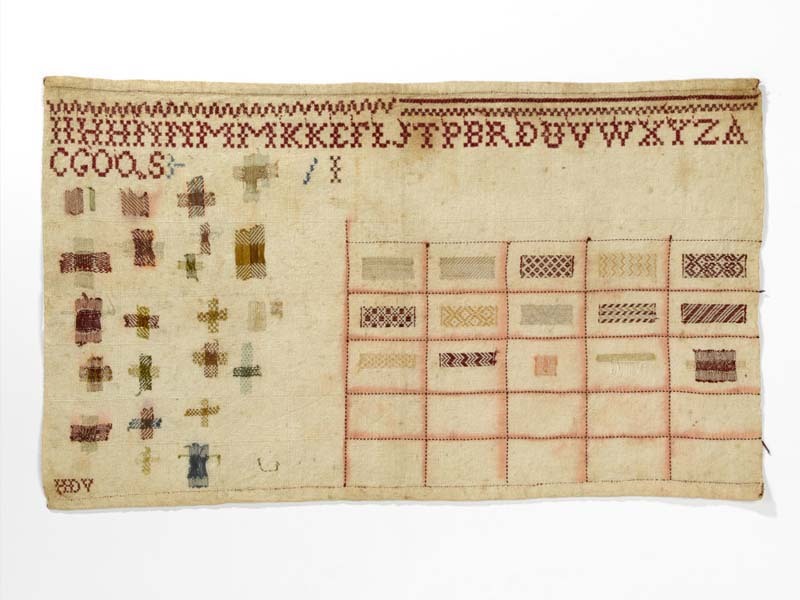 IIHHNNMMKKEFLJTPBRDUVWXYZA
CGOQS I